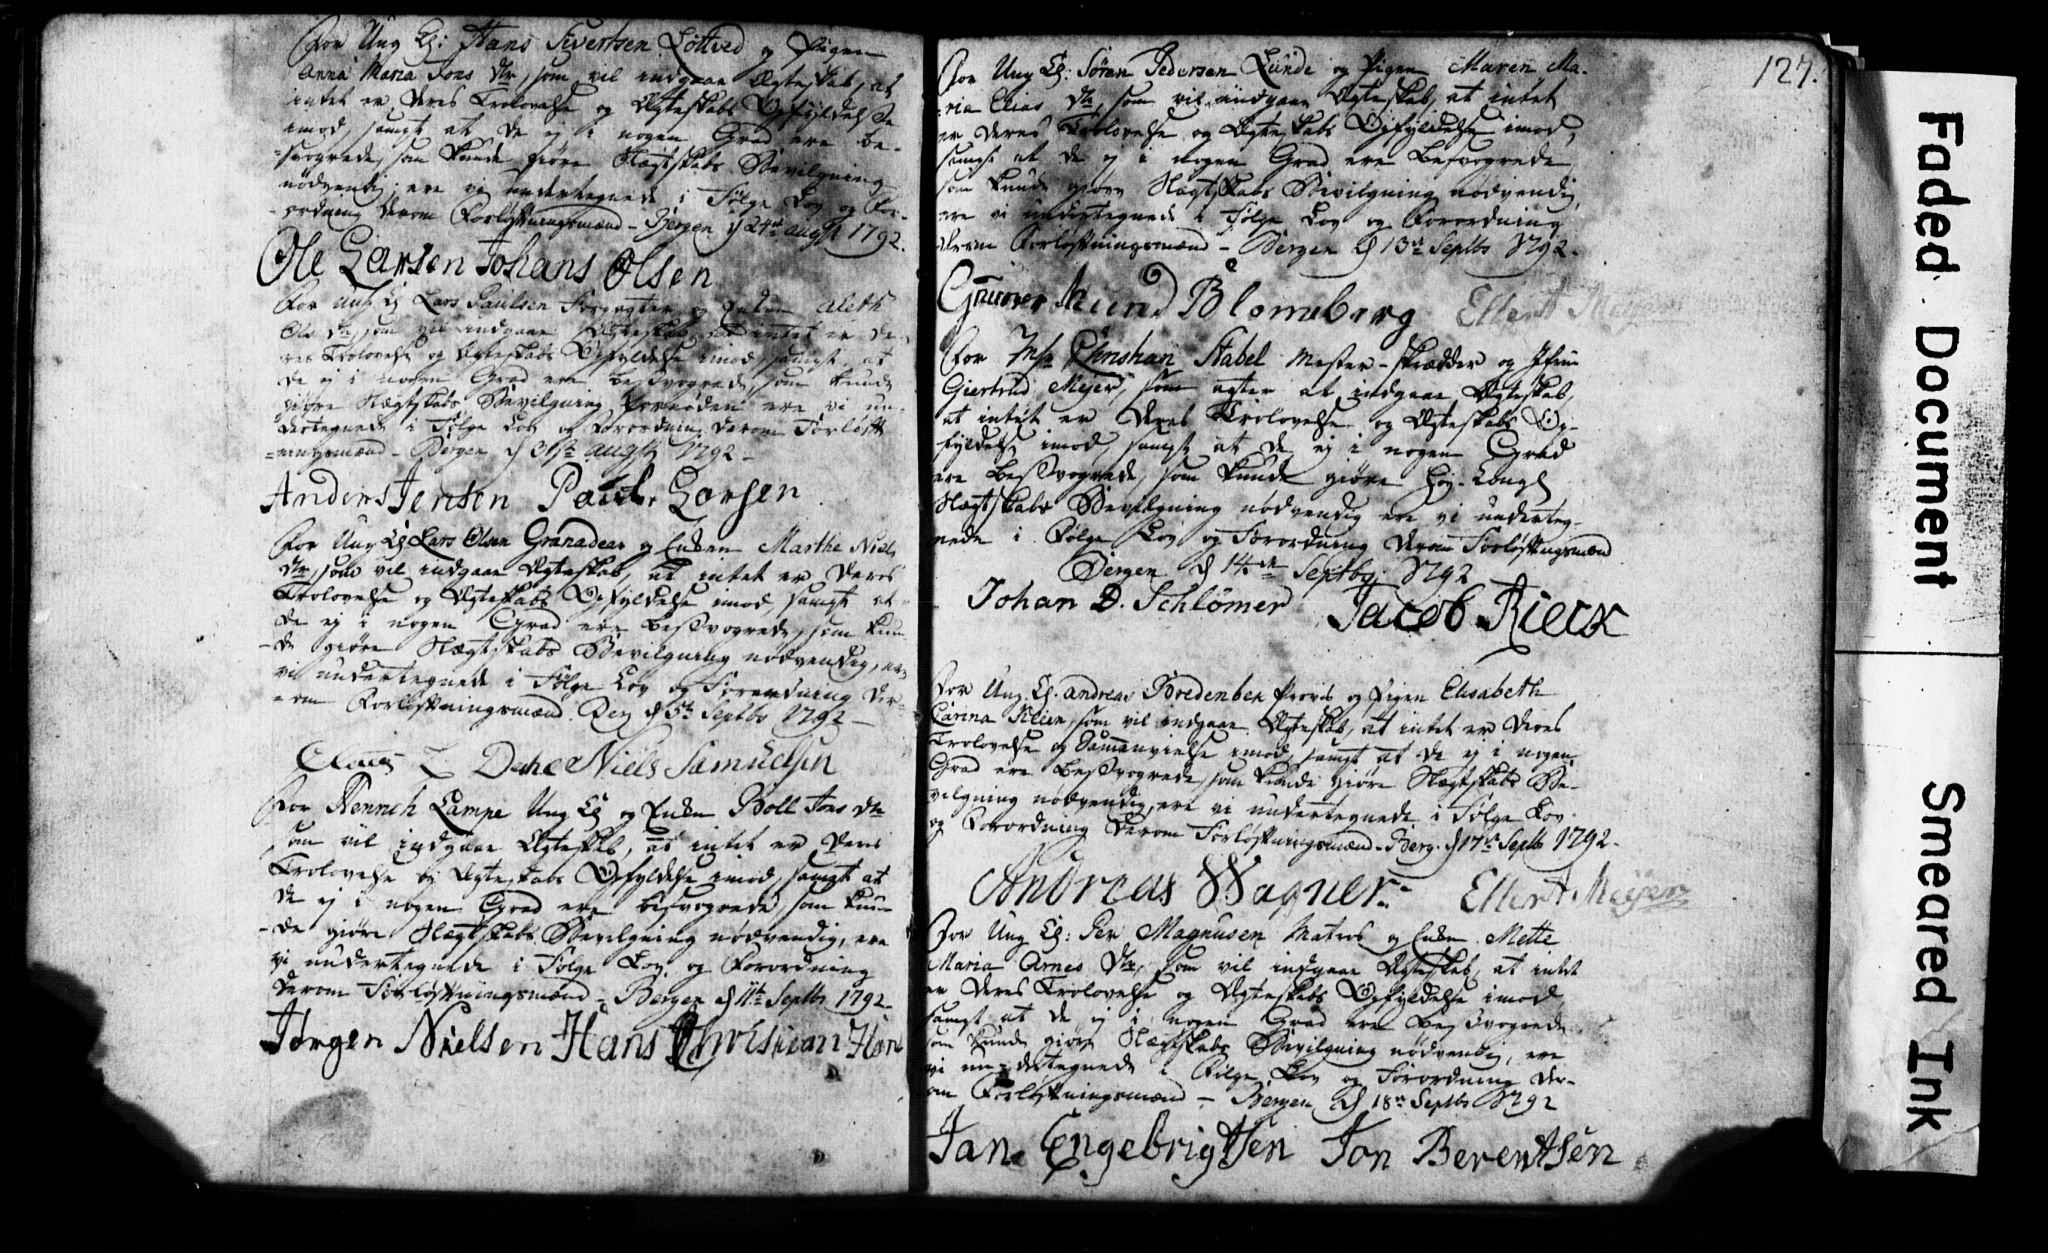 For Ung Kl: Hans Sivertsen Løttved og Pigen
Anna Maria Jons Dtr, som vil indgaae Ægteskab, at
intet er deres Trolovelse og Ægteskabs Opfyldelse
imod, samt at de ej i nogen Grad ere be-
=svogrede, som kunde giøre Slægtskabs Bevilgning
nødvendig; ere vi undertegnede i Følge Lov og For-
-ordning derom Forlovningsmænd - Bergen d 24de augst 1792.
Ole Larsen Johans Olsen
For Ung Kl Lars Paulsen og Enken Aleth
Ols Dtr, som vil indgaae Ægteskab, at intet er de-
res Trolovelse og Ægteskabs Opfyldelse imod, samt at
de ej i nogen Grad ere besvogrede, som kunde
giøre Slægtskabs Bevilgning fornøden ere vi un-
dertegnede i Følge Lov og Forordning derom Forlovn
=ingsmænd - Bergen d 31te augst 1792 -
Anders Jensen Paul Larsen
For Ung Kl Lars Olsen Granadeer og Enken Marthe Niels
Dtr, som vil indgaae Ægteskab, at intet er deres
Trolovelse og Ægteskabs Opfyldelse imod samt at
de ej i nogen Grad ere besvogrede, som kun-
-de giøre Slægtskabs Bevilgning nødvendig, ere
vi undertegnede i Følge Lov og Forordning der-
=om Forlovningsmænd. Berg d 5te Septbr 1792 -
Claus L Dahl Niels Samuelsen
For Henrich Lampe Ung Kl og Enken Boll Jons Dtr
som vil indgaae Ægteskab, at intet er deres
Trolovelse og Ægteskabs Opfyldelse imod, samt at
de ej i nogen Grad ere besvogrede, som kun-
-de giøre Slægtskabs Bevilgning nødvendig, ere
vi undertegnede i Følge Lov og Forordning
derom Forlovningsmænd - Bergen d 11te Septbr 1792 -
Jørgen Nielsen Hans Christian
127.
For Ung Kl: Søren Pedersen Lunde og Pigen Maren Ma-
=ria Elias Dtr, som vil indgaae Ægteskab, at intet
er deres Trolovelse og Ægteskabs Opfyldelse imod,
samt at de ej i nogen Grad ere besvogrede
som kunde giøre Slægtskabs Bevilgning nødvendig,
ere vi undertegnede i Følge Lov og Forordning
derom Forlovningsmænd - Bergen d 13de Septbr 1792 -
Blomberg Ellert Meyer
For Msr Christian Stabel Mester-Skrædder og Jfru
Giertrud Meyer, som agter at indgaae Ægteskab,
at intet er deres Trolovelse og Ægteskabs Op-
fyldelse imod, samt at de ej i nogen Grad
ere besvogrede, som kunde giøre Høy-Kongl
Slægtskabs Bevilgning nødvendig ere vi underteg-
nede i Følge Lov og Forordning derom Forlovningsmænd
Bergen d 14de Septbr 1792
Johan D. Schlömer Jacob Rieck
For Ung Kl. Andreas Bredenbek og Pigen Elisabeth
Carina Klien, som vil indgaae Ægteskab, at intet er deres
Trolovelse og Sammenvielse imod, samt at de ej i nogen
Grad ere besvogrede, som kunde giøre Slægtskabs Be-
vilgning nødvendig, ere vi undertegnede i Følge Lov
og Forordning derom Forlovningsmænd - Berg. d 17de Septb 1792 -
Andreas Wagner. Ellert Meyer
For Ung Kl: Per Magnusen Matros og Enken Mette
Maria Arnes Dtr, som vil indgaae Ægteskab, at intet
er deres Trolovelse og Ægteskabs Opfyldelse imod,
samt at de ej i nogen Grad ere besvogrede
som kunde giøre Slægtskabs Bevilgning nødvendig, ere
vi un-dertegnede i Følge Lov og Forordning der-
om Forlovningsmænd - Bergen d 18de Septbr 1792
Jan Engebrigtsen Jon Berentsen
Faded Document
Smeared Ink